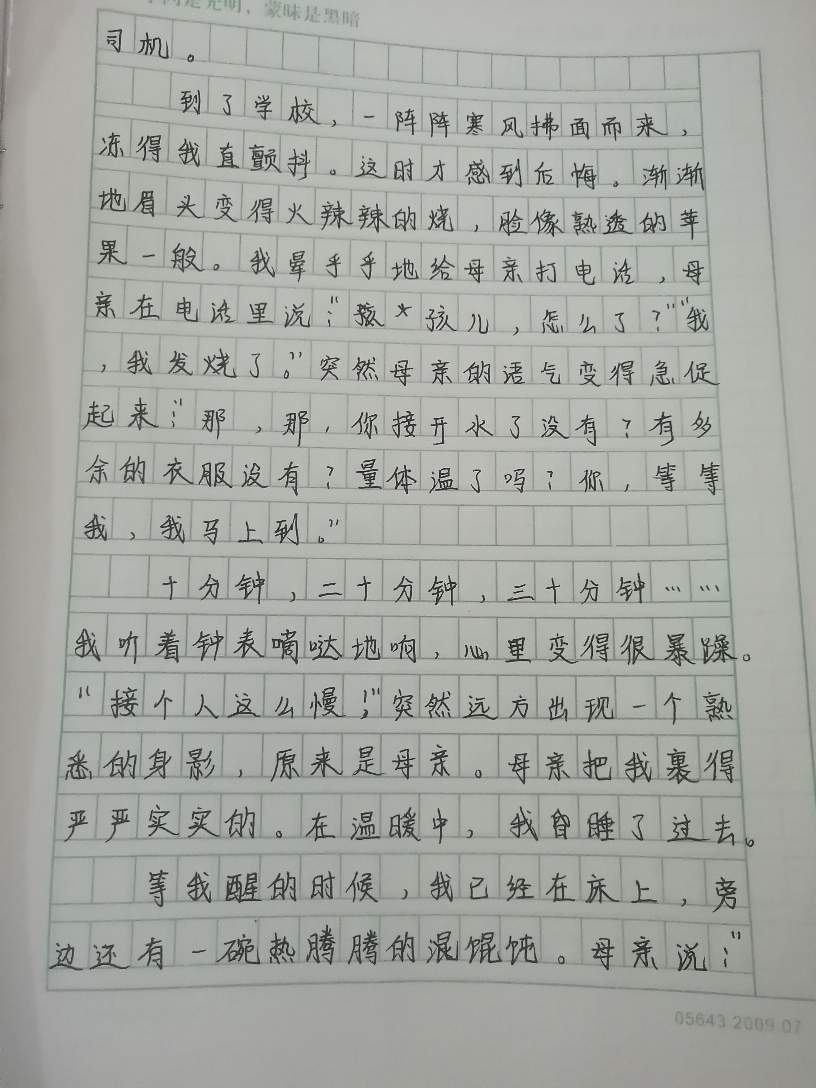 是光明，蒙昧是黑暗
司机。
到了学校，一阵阵寒风拂面而来，
冻得我直颤抖。这时才感到后悔。渐渐
地眉头变得火辣辣的烧，脸像熟透的苹
果一般。我晕乎乎地给母亲打电话，母
亲在电话里说：“孩儿，怎么了？”“我
，我发烧了。”突然母亲的语气变得急促
起来：“那，那，你接开水了没有？有多
余的衣服没有？量体温了吗？你，等等
我，我马上到。”
十分钟，二十分钟，三十分钟……
我听着钟表嘀哒地响，心里变得很暴躁。
“接个人这么慢！”突然远方出现一个熟
悉的身影，原来是母亲。母亲把我裹得
严严实实的。在温暖中，我昏睡了过去。
等我醒的时候，我已经在床上，旁
边还有一碗热腾腾的混馄饨。母亲说：“
05643.2009.07